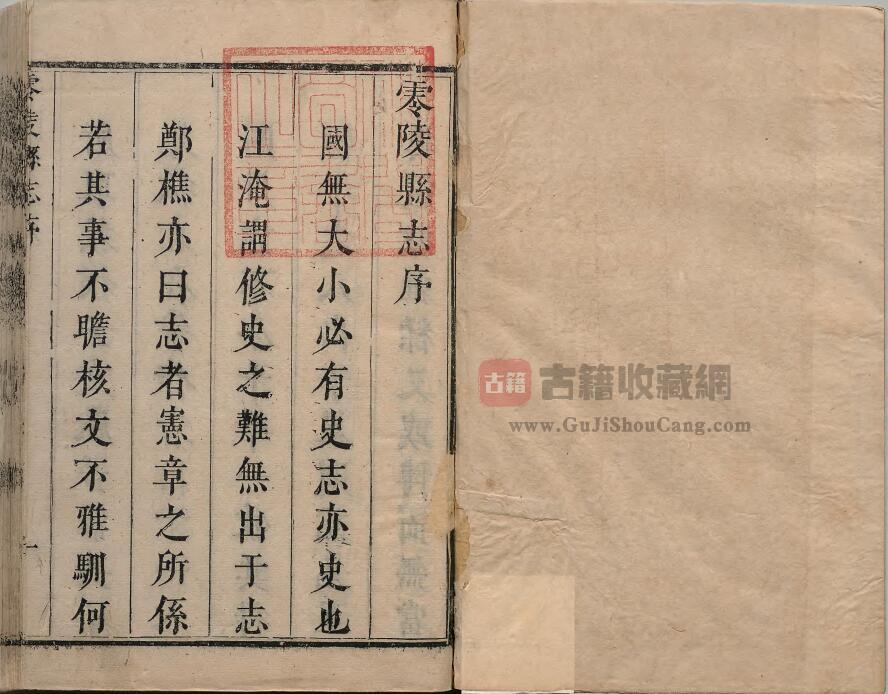 零陵縣志序
國無大小必有史志亦史也
江淹謂修史之難無出于志
鄭樵亦曰志者憲章之所係
若其事不瞻核文不雅馴何
零陵縣志序
一
古籍
古籍收藏網
www.GuJiShouCang.com